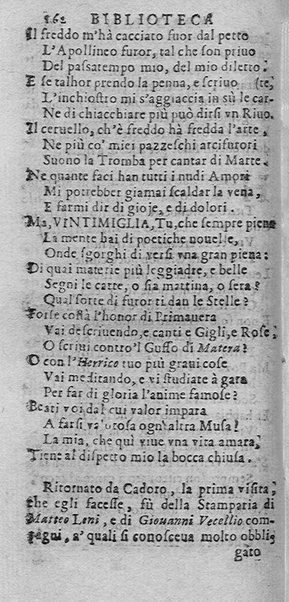 862 BIBLIOTECA
Il freddo m'hà cacciato fuor dal petto
L'Apollineo furor, tal che son priuo
Del passatempo mio, del mio diletto.
E se talhor prendo la penna, e scriuo (te,
L'inchiostro mi s'aggiaccia in sù le car-
Ne di chiacchiare più può dirsi vn Riuo.
Il ceruello, ch'è freddo hà fredda l'arte,
Ne più co' miei pazzeschi arcifurori
Suono la Tromba per cantar di Marte.
Ne quante faci han tutti i nudi Amori
Mi potrebber giamai scaldar la vena,
E farmi dir di gioje, e di dolori.
Ma, VINTIMIGLIA, Tu, che sempre piena
La mente hai di poetiche nouelle,
Onde sgorghi di versi vna gran piena:
Di quai materie più leggiadre, e belle
Segni le carte, o sia mattina, o sera?
Qual sorte di furor ti dan le Stelle?
Forse costà l'honor di Primauera
Vai descriuendo, e canti e Gigli, e Rose,
O scriui contro'l Guffo di Matera?
O con l'Herrico tuo più graui cose
Vai meditando, e vi studiate à gara
Per far di gloria l'anime famose?
Beati voi dal cui valor impara
A farsi valorosa ogn'altra Musa!
La mia, che quì viue vna vita amara,
Tiene al dispetto mio la bocca chiusa.
Ritornato da Cadoro, la prima visita,
che egli facesse, fù della Stamparia di
Matteo Leni, e di Giouanni Vecellio com-
pagni, a' quali si conosceua molto obbli-
gato